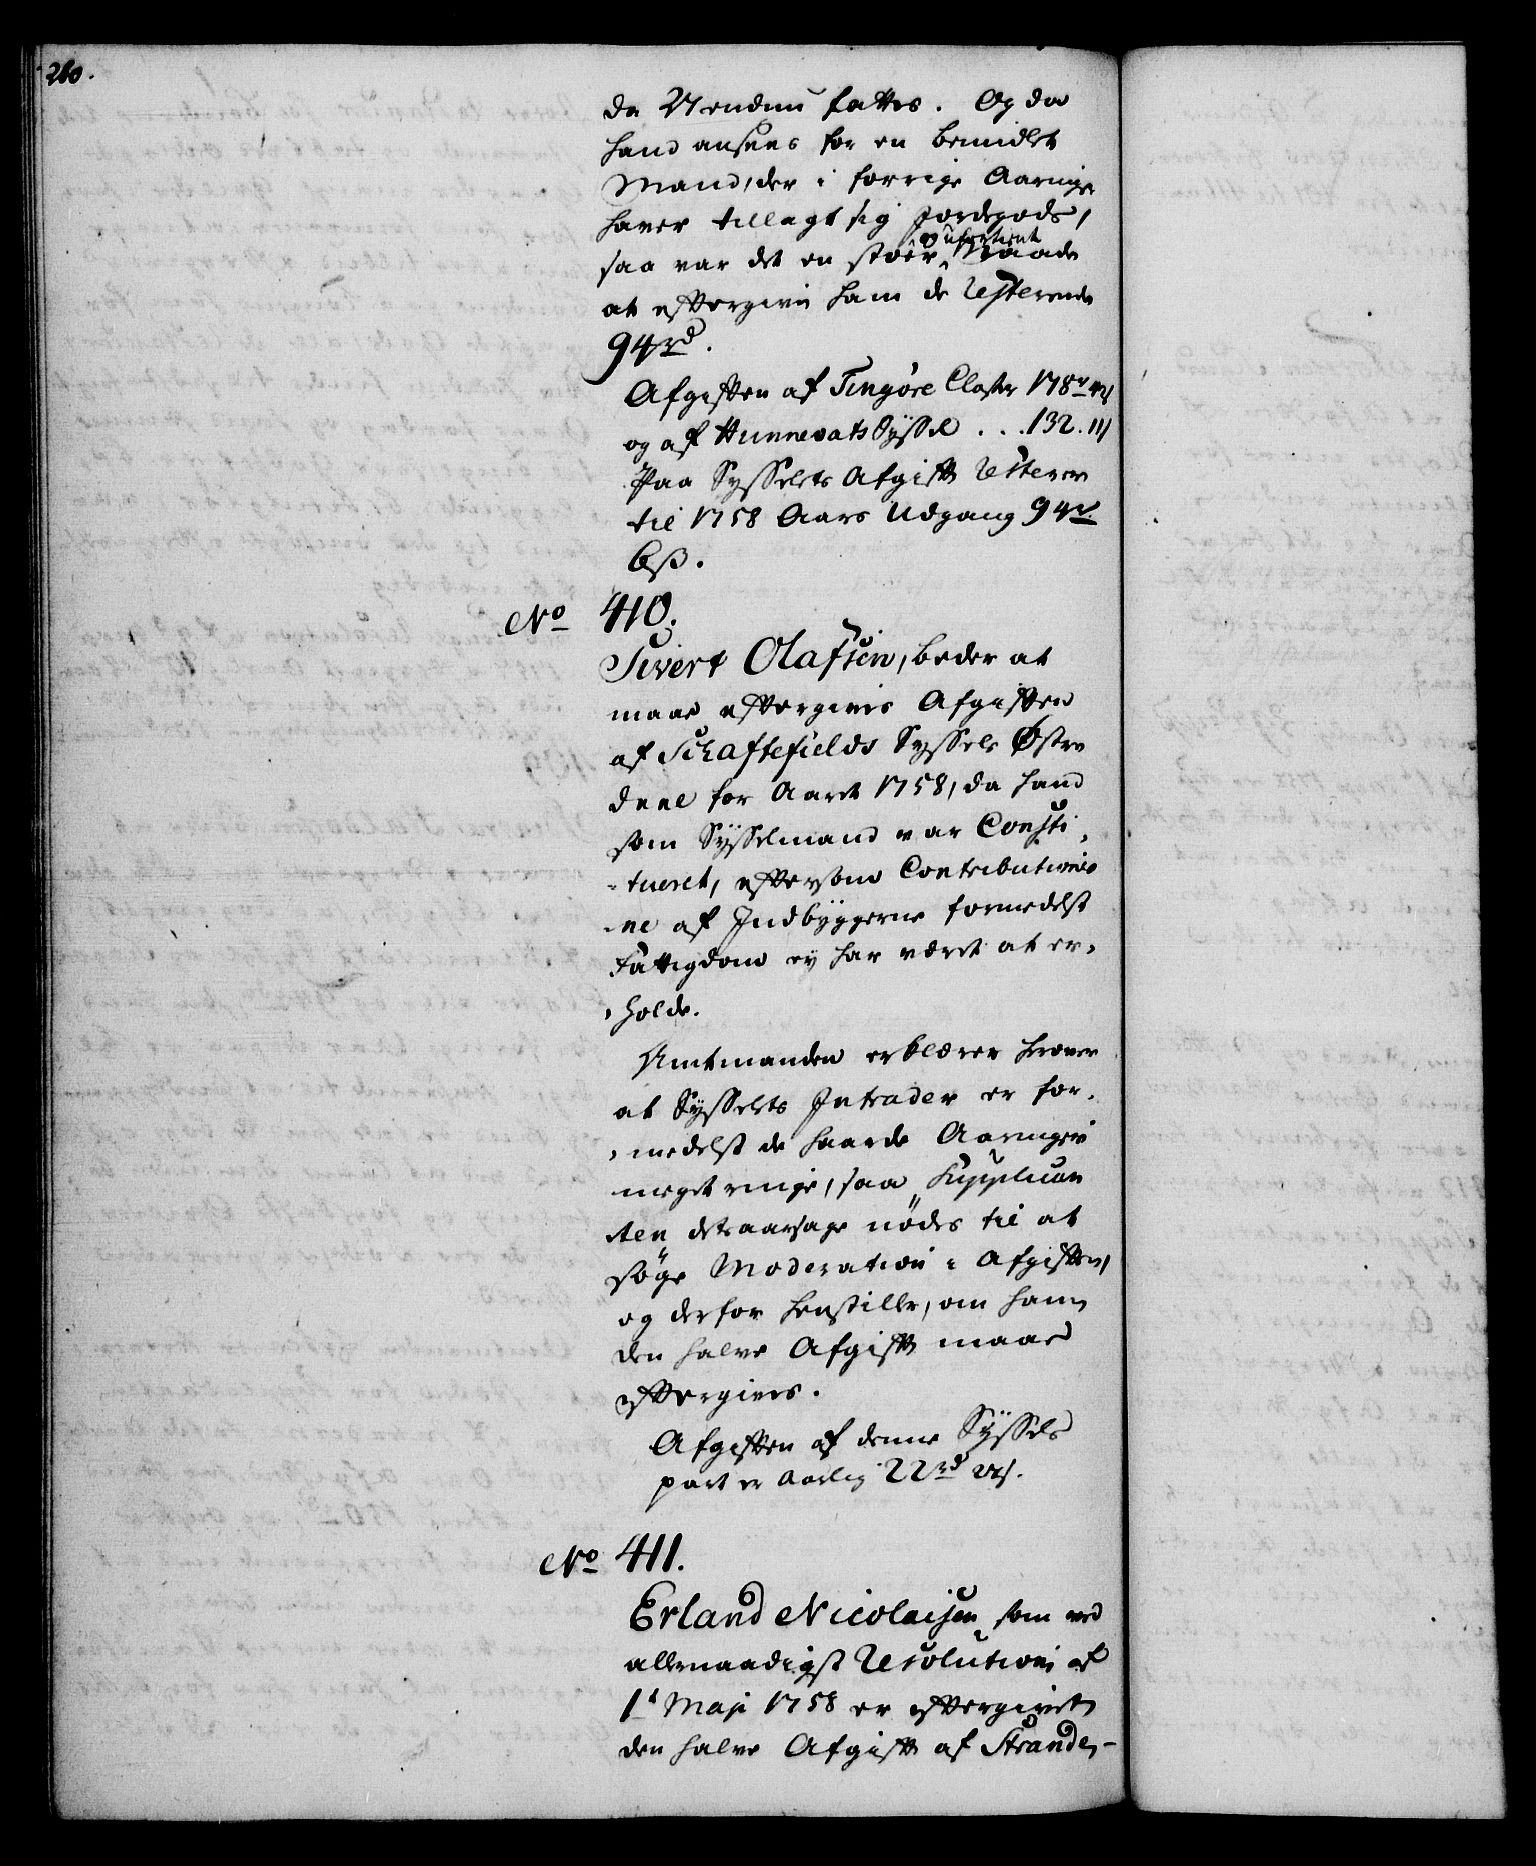 260.
da Nendnu fattes. Og da
hand ansees for en bemidlet
Mand, der i forrige Aaringer
haver tillagt sig Jordegods,
saa var det en stoer ufortient Naade
at eftergive ham de Resterende
94rd.
Afgiften af Tingøre Closter 178r
og af Hunnevats Syssel . . . 132.
Paa Sysselets Afgift Resterer
til 1758 Aars Udgang 94r.
6ß.
No 410.
Sivert Olafsen, beder at
maae eftergives Afgiften
af Schaftefields Syssels Østre
Deel for Aaret 1758, da hand
som Sysselmand var Consti-
-tueret, eftersom Contributioner-
-ne af Indbyggerne formedelst
Fattigdom ey har været at er-
-holde.
Amtmanden erklærer herover
at Sysselets Intrader er for-
-medelst de haarde Aaringer
meget ringe, saa Supplican
ten detsaarsage nødes til at
søge Moderation i Afgiften,
og derfor henstiller, om ham
den halve Afgift maae
eftergives.
Afgiften af denne Syssels
part er Aarlig 22rd
No 411.
Erland Nicolaisen som ved
allernaadigst Resolution af
1t Maji 1758 er eftergivet
den halve Afgift af Strande-